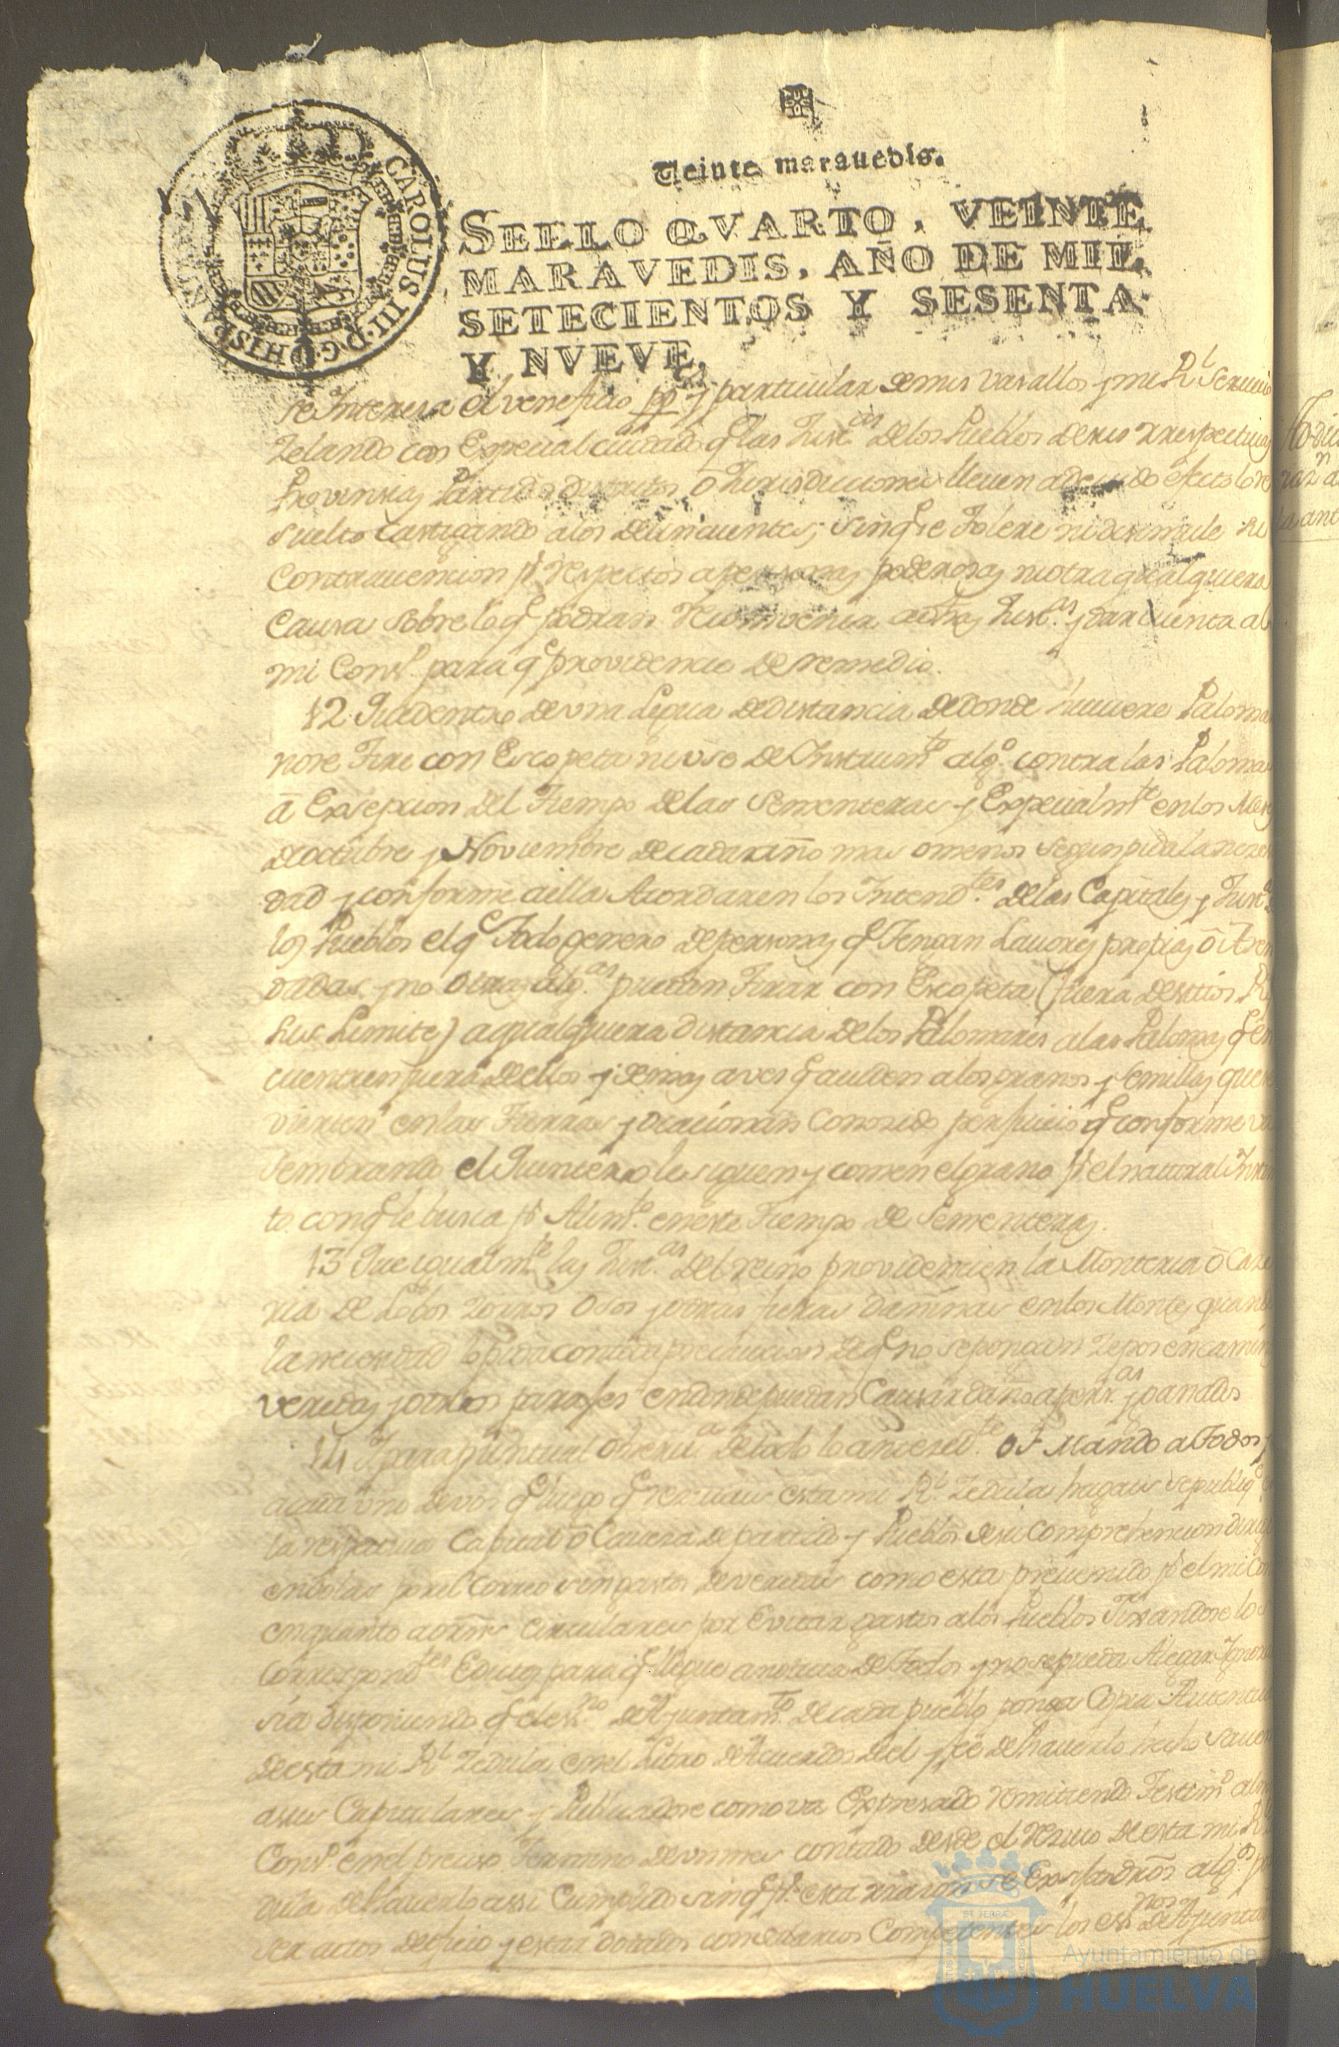 Veinte maravedis.
SELLO QVARTO, VEINTE
MARAVEDIS, AÑO DE MIL
SETECIENTOS Y SESENTA
Y NVEVE.
CAROLUS III D.G. HISPANIAR
se Interesa el veneficio pp.co y particular de mis vasallos y mi R.l Servicio
Zelando con Especial cuidado q.e las Just.as de los Pueblos de sus Respectivas
Provincias Partidos distritos o Jurisdicciones lleven a devido efecto lo re
suelto castigando a los delincuentes; sin q.e se Tolere ni desimule su
Contravencion p.r respectos a personas poderosas ni otra qualquiera
Causa sobre lo q.e podran Reconvenir a dhas Just.as y dar cuenta al
mi Cons.o para q.e providencie de remedio.
12 Que dentro de una Legua de distancia de donde huviere Paloma
no se Tire con Escopeta ni use de Instrum.to alg.o contra las Palomas
a Exsepcion del Tiempo de las Sementeras y Especialm.te en los Meses
de octubre y Noviembre de cada año mas o menos segun pida la nece
dad y conforme a ella Acordaren los Intend.tes de las Capitales y Just.s
los Pueblos el q.e Todo genero de personas q.e Tengan Lavores propias ô Arren
dadas y no otras alg.as puedan Tirar con Escopeta (fuera de sitios R
sus Limites) a qualquiera distancia de los Palomares a las Palomas q.e en
cuentren fuera de ellos y demas aves q.e acuden a los granos y semillas que
vierten en las Tierras y ocacionan conosido perjuicio q.e conforme va
sembrando el Quintero le siguen y comen el grano p.r el natural Inst
to con q.e le busca p.r Alim.to en este Tiempo de Sementeras.
13 Que igualm.te las Just.as del reino providencien la Monteria ô Case
ria de Lobos Zorros Osos y otras fieras dañinas en los Montes quand
la necesidad lo pida con la precaucion de q.e no se pongan Zepos en camin
veredas y otros parajes en donde puedan Causar daño a pers.as y ganados
14 Y para puntual observ.a de todo lo anteced.te os Mando a Todos y
a cada uno de vos q.e luego q.e reciuais esta mi R.l Zedula hagais se publiq.e
la respectiva Capital ô Cavesa de partido y Pueblos de su Comprehencion dirigi
endolas por el Correo sin gastos de veredas como esta prevenido p.r el mi Con
en quanto a orns circulares por Evitar gastos a los Pueblos Fixandose lo
Correspond.tes Edictos para q.e llegue a noticia de Todos y no se pueda Alegar Ignora
sia disponiendo q.e el es.no de Ayuntam.to de cada pueblo ponga Copia Autentic
de esta mi R.l Zedula en el Libro de Acuerdos del y fee de haverlo hecho saver
a sus Capitulares y Publicadose como va Expresado remitiendo Testim.o al
Cons.o en el preciso Termino de un mes contado desde el reciuo de esta mi R
dula de haverlo assi Cumplido sin q.e p.r esta razon se Exsijan dros alg.s p
ser autos de oficio y estar dotados con salarios Competentes los ess.nos de Ayuntam
Ayuntamiento de
HUELVA